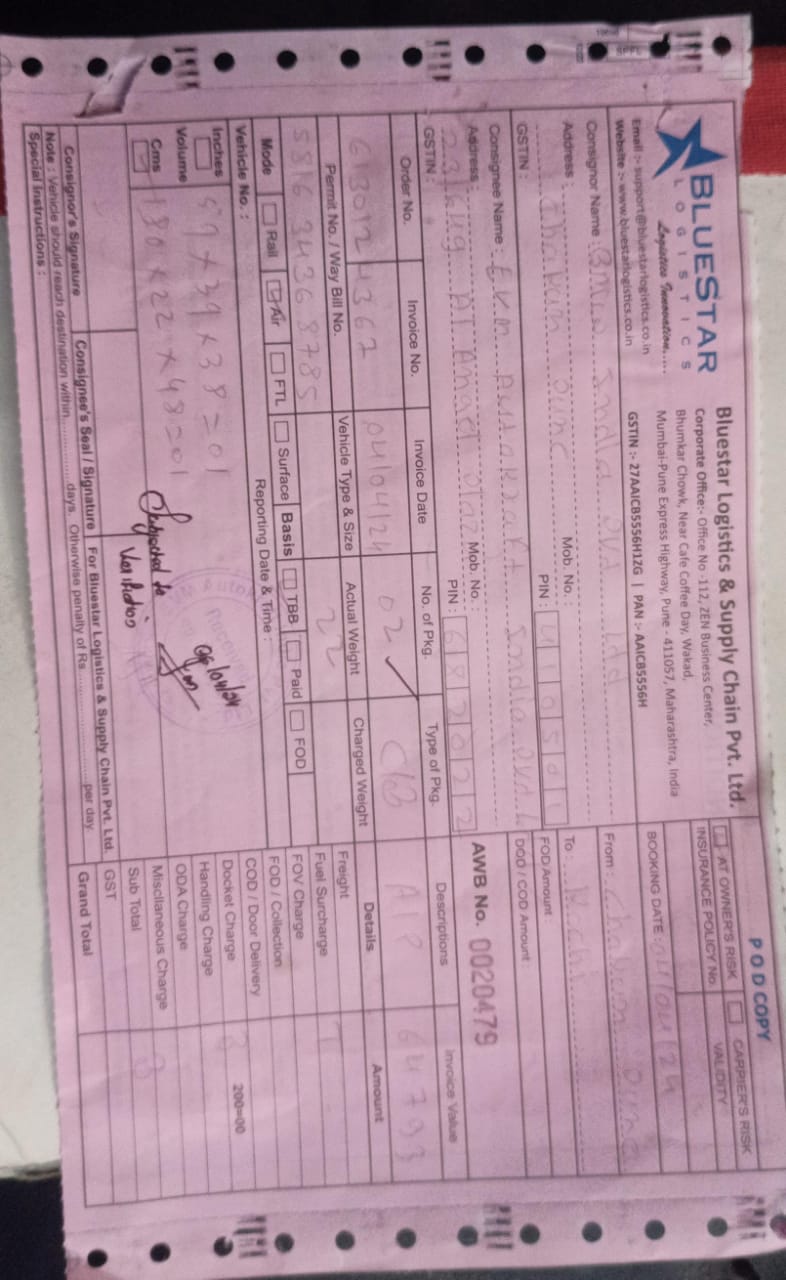 POD COPY
BLUESTAR
LOGISTICS
Logistics Innovation.....
Email :- support@bluestarlogistics.co.in
Website :- www.bluestarlogistics.co.in
Bluestar Logistics & Supply Chain Pvt. Ltd.
Corporate Office:- Office No -112, ZEN Business Center,
Bhumkar Chowk, Near Cafe Coffee Day, Wakad,
Mumbai-Pune Express Highway, Pune - 411057, Maharashtra, India
GSTIN :- 27AAICB5556H1ZG | PAN :- AAICB5556H
AT OWNER'S RISK CARRIER'S RISK
INSURANCE POLICY No. VALIDITY
BOOKING DATE : 04/04/24
Consignor Name : India Pvt Ltd
From : Chakan Pune
Address : Mob. No. :
Chakan Pune PIN : 410501
To : Kochi
GSTIN :
FOD Amount :
Consignee Name : EVM Autokraft India Pvt L
DOD / COD Amount :
Address : Mob. No. :
PIN : 682022
AWB No. 0020479
GSTIN :
Order No. Invoice No. Invoice Date No. of Pkg. Type of Pkg. Descriptions Invoice Value
613012 4367 04/04/24 02 A/P 64793
Permit No. / Way Bill No. Vehicle Type & Size Actual Weight Charged Weight Details Amount
5816 3436 8785 22
Freight
Fuel Surcharge
Mode Rail Air FTL Surface Basis TBB Paid FOD
FOV Charge
Vehicle No. : Reporting Date & Time :
FOD / Collection
COD / Door Delivery
Docket Charge 200=00
Handling Charge
ODA Charge
Miscllaneous Charge
Sub Total
GST
Grand Total
Inches
Volume
Cms
59 x 39 x 38 = 01
130 x 22 x 48 = 01
Received
06/04/24
Subjected to
Verification
Consignor's Signature Consignee's Seal / Signature For Bluestar Logistics & Supply Chain Pvt. Ltd.
Note : Vehicle should reach destination within.................days. Otherwise penalty of Rs.............................per day.
Special Instructions :